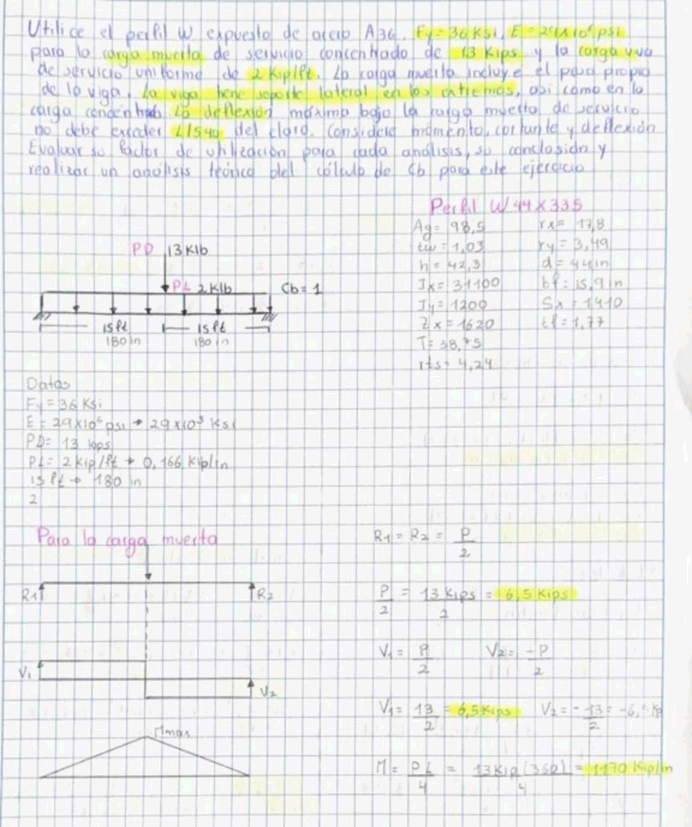 Utilice el perfil W expuesto de acero A36. Fy = 36 Ksi, E = 29x10⁶ psi
para la carga muerta de servicio concentrado de 13 Kips y la carga viva
de servicio uniforme de 2 Kip/ft. La carga muerta incluye el peso propio
de la viga. La viga tiene soporte lateral en los extremos, asi como en la
carga concentrada La deflexión máxima bajo la carga muerta de servicio
no debe exceder L/1540 del claro. Considere momento, cortante y deflexión
Evaluar su factor de utilización para cada analisis, su conclusión y
realizar un análisis teórico del cálculo de Cb para este ejercicio
Perfil W 44 x 335
Ag = 98,5 rx = 17,8
tw = 1,03 ry = 3,49
h = 42,3 d = 44 in
Ix = 31100 bf = 15,9 in
Iy = 1200 Sx = 1410
Zx = 1620 tf = 1,77
T = 38,75
rts = 4,24
PD 13 Klb
PL 2 Klb Cb = 1
15 ft 15 ft
180 in 180 in
Datos
Fy = 36 Ksi
E = 29x10⁶ psi → 29x10³ Ksi
PD = 13 kips
PL = 2 kip/ft → 0,166 Kip/in
15 ft → 180 in
2
Para la carga muerta
R1 = R2 = P/2
R1 R2
P/2 = 13 Kips/2 = 6,5 Kips
V1 = P/2 V2 = -P/2
V1 V2
V1 = 13/2 = 6,5 Kips V2 = -13/2 = -6,5 Kp
Mmax
M = PL/4 = 13 Kip (360)/4 = 1170 Kip/in